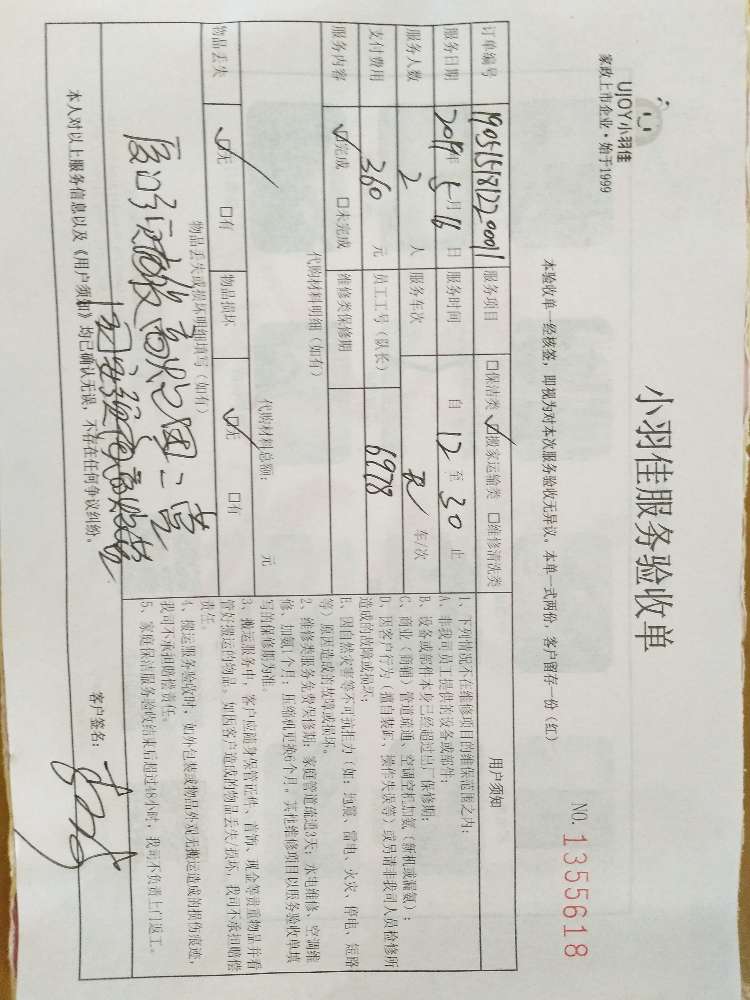 UJOY小羽佳
家政上市企业·始于1999
小羽佳服务验收单
NO. 1355618
本验收单一经核签，即视为对本次服务验收无异议。本单一式两份，客户留存一份（红）
订单编号 190515181220001 服务项目 □保洁类 ☑搬家运输类 □维修清洗类
服务日期 2019年5月16日 服务时间 自 12 至 30 止
服务人数 2 人 服务车次 车/次
支付费用 360 元 员工工号（队长） 6978
服务内容 ☑完成 □未完成 维修类保修期
代购材料明细（如有）
代购材料总额： 元
物品丢失 ☑无 □有 物品损坏 ☑无 □有
物品丢失或损坏明细填写（如有）
本人对以上服务信息以及《用户须知》均已确认无误，不存在任何争议纠纷。
用户须知
1、下列情况不在维修项目的维保范围之内：
A、非我司员工提供的设备或部件；
B、设备或部件本身已经超过出厂保修期；
C、商业（商铺）管道疏通、空调空机加氨（新机或漏氨）；
D、因客户行为（擅自装卸、操作失误等）或另请非我司人员检修所
造成的故障或损坏；
E、因自然灾害等不可抗拒力（如：地震、雷电、火灾、停电、短路
等）原因造成的故障或损坏。
2、维修类服务免费保修期：家庭管道疏通3天；水电维修、空调维
修、加氨1个月；压缩机更换6个月。其他维修项目以服务验收单填
写的保修期为准。
3、搬运服务中，客户应随身保管证件、首饰、现金等贵重物品并看
管好搬运的物品。如因客户造成的物品丢失/损坏，我司不承担赔偿
责任。
4、搬运服务验收时，如外包装或物品外观无搬运造成的损伤痕迹，
我司不承担赔偿责任。
5、家庭保洁服务验收结束后超过48小时，我司不负责上门返工。
客户签名：